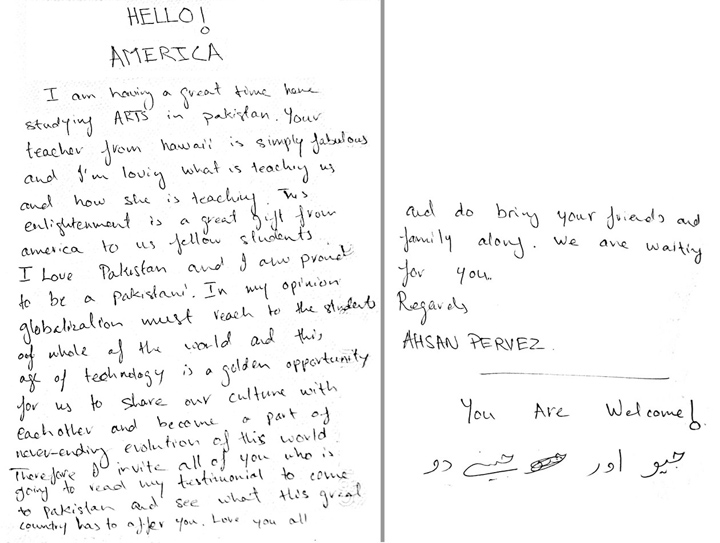 HELLO!
AMERICA
I am having a great time here
studying ARTS in pakistan. Your
teacher from hawaii is simply fabulous
and I'm loving what is teaching us
and how she is teaching. This
enlightenment is a great gift from
america to us fellow students.
I Love Pakistan and I am proud
to be a pakistani. In my opinion
globalization must reach to the students
of whole of the world and this
age of technology is a golden opportunity
for us to share our culture with
eachother and become a part of
never-ending evolution of this world.
Therefore I invite all of you who is
going to read my testimonial to come
to pakistan and see what this great
country has to offer you. Love you all
and do bring your friends and
family along. We are waiting
for you.
Regards
AHSAN PERVEZ.
You Are Welcome!
جیو اور جینے دو